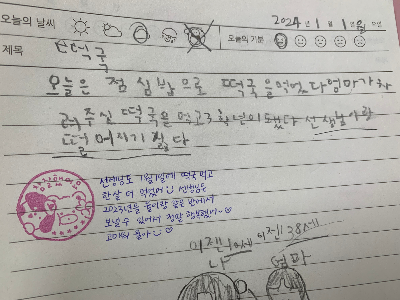 오늘의 날씨
2024년 1월 1일 월요일
오늘의 기분
제목 떡국
오늘은 점심밥으로 떡국을 먹었다 엄마가 차
려주신 떡국을 먹고 3학년이 됐다 선생님이랑
떨어지기 싫다
선생님도 1월 1일에 떡국 먹고
한살 더 먹었어
2023년을 같은 반에서
보낼 수 있어서 정말 행복했어~
고마워
이젠 38세
나 엄마